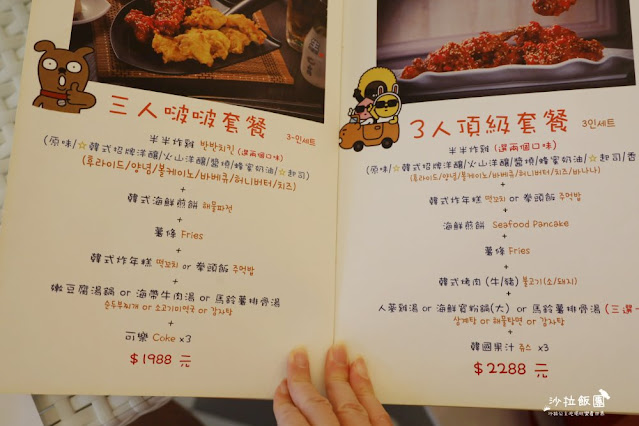 三人啵啵套餐 3-인세트
半半炸雞 반반치킨 (選兩個口味)
(原味/☆韓式招牌洋釀/火山洋釀/醬燒/蜂蜜奶油/☆起司)
(후라이드/양념/볼케이노/바베큐/허니버터/치즈)
+
韓式海鮮煎餅 해물파전
+
薯條 Fries
+
韓式炸年糕 떡꼬치 or 拳頭飯 주먹밥
+
嫩豆腐湯鍋 or 海帶牛肉湯 or 馬鈴薯排骨湯
순두부찌개 or 소고기미역국 or 감자탕
+
可樂 Coke x3
$1988 元
3人頂級套餐 3-인세트
半半炸雞 (選兩個口味)
(原味/☆韓式招牌洋釀/火山洋釀/醬燒/蜂蜜奶油/☆起司/香
(후라이드/양념/볼케이노/바베큐/허니버터/치즈/바나나)
+
韓式炸年糕 떡꼬치 or 拳頭飯 주먹밥
+
海鮮煎餅 Seafood Pancake
+
薯條 Fries
+
韓式烤肉 (牛/豬) 불고기(소/돼지)
+
人蔘雞湯 or 海鮮寬粉鍋(大) or 馬鈴薯排骨湯 (三選一
삼계탕 or 해물탕면 or 감자탕
+
韓國果汁 쥬스 x3
$2288 元
沙拉飯團